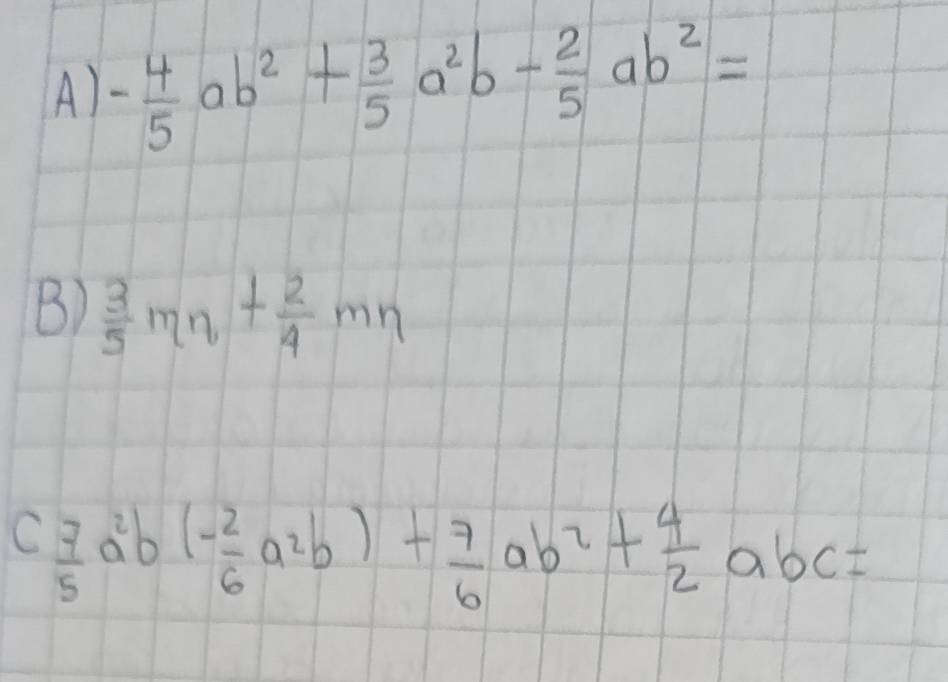 A) - 4/5 ab² + 3/5 a²b - 2/5 ab² =
B) 3/5 mn + 2/4 mn
C 7/5 a²b (- 2/6 a²b) + 7/6 ab² + 4/2 abc =